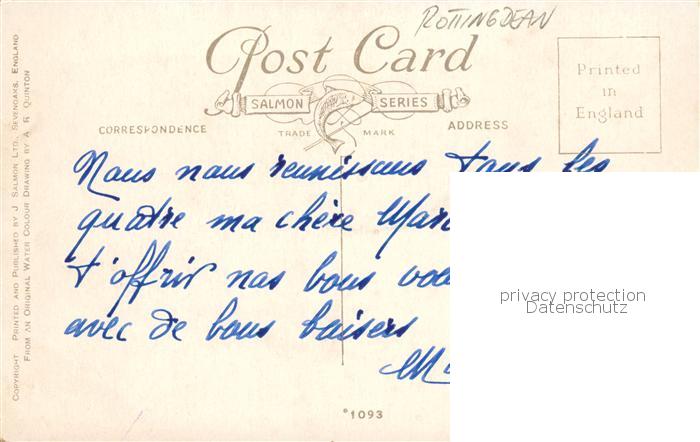 ROTTINGDEAN
Post Card
SALMON SERIES
TRADE MARK
CORRESPONDENCE
ADDRESS
Printed
in
England
COPYRIGHT PRINTED AND PUBLISHED BY J. SALMON LTD., SEVENOAKS, ENGLAND
FROM AN ORIGINAL WATER COLOUR DRAWING BY A. R. QUINTON
Nous nous reunissons tous les
quatre ma chère
t'offrir nos bons
avec de bons baisers
privacy protection
Datenschutz
°1093